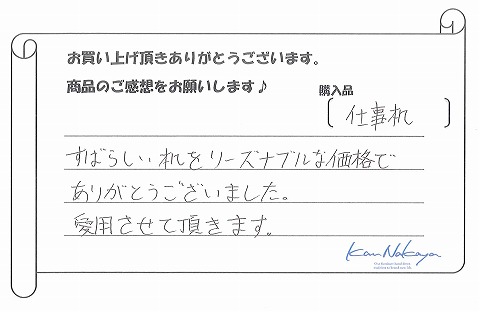 お買い上げ頂きありがとうございます。
商品のご感想をお願いします♪
購入品
[仕事机]
すばらしい机をリーズナブルな価格で
ありがとうございました。
愛用させて頂きます。
KanNakaya